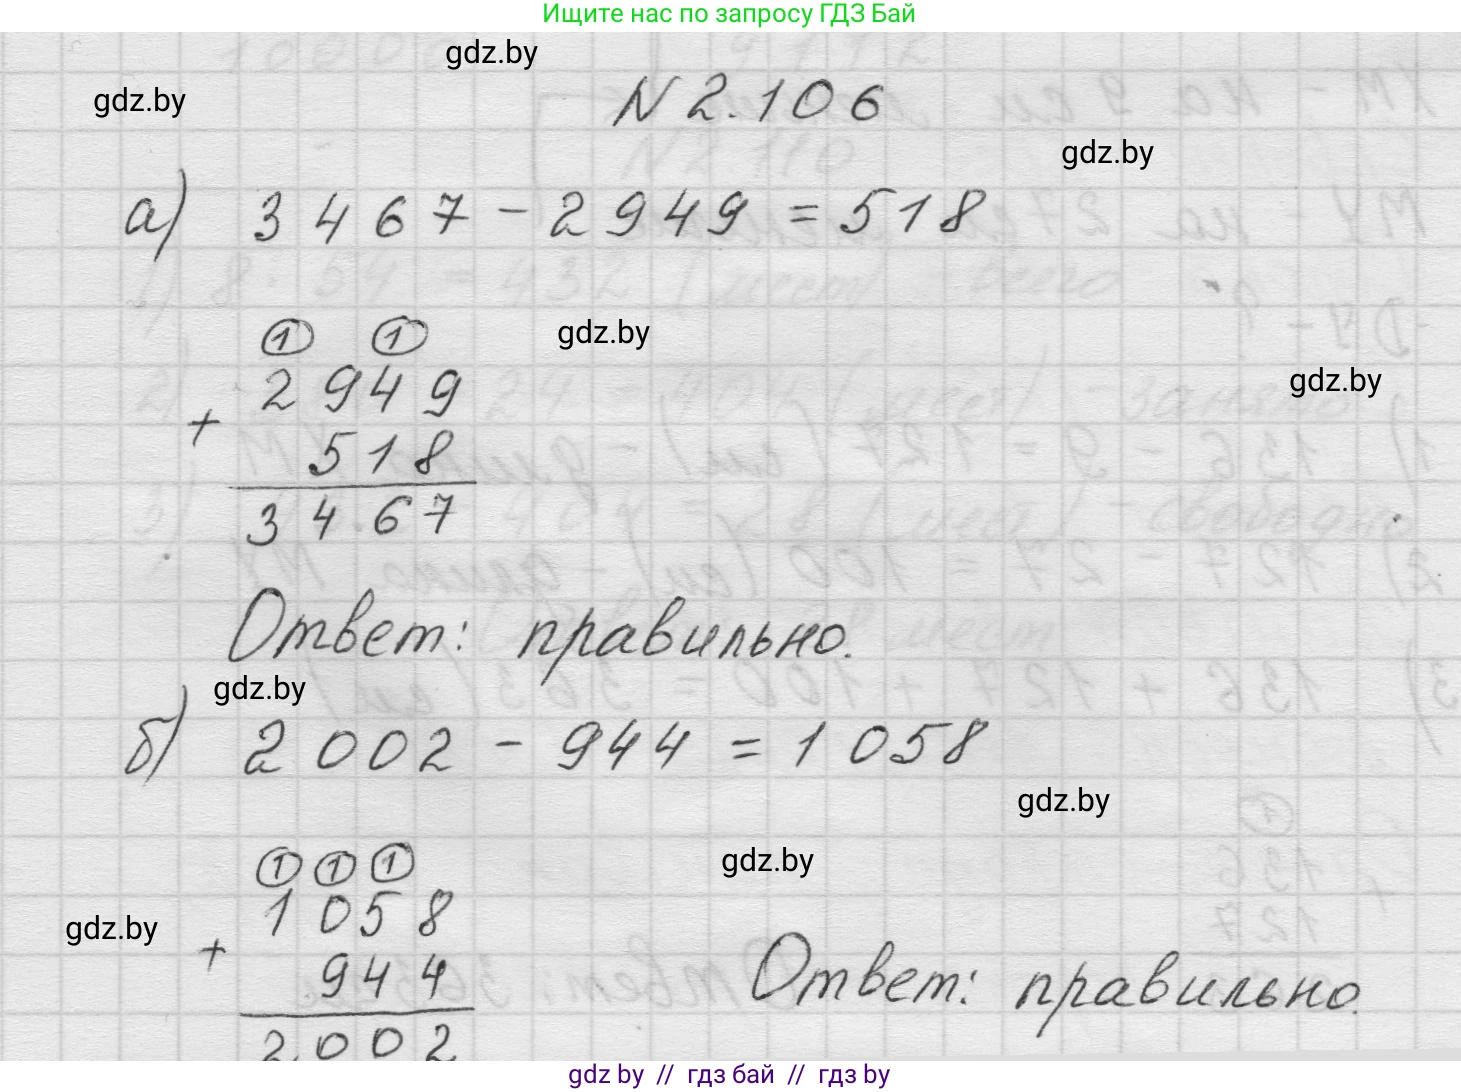 Ищите нас по запросу ГДЗ Бай
gdz.by
gdz.by
N 2.106
gdz.by
а) 3467 - 2949 = 518
gdz.by
1 1
gdz.by
2949
+
518
3467
Ответ: правильно.
gdz.by
б) 2002 - 944 = 1058
gdz.by
gdz.by
1 1 1
1058
gdz.by
+
944
Ответ: правильно.
2002
gdz.by // гдз бай // гдз by